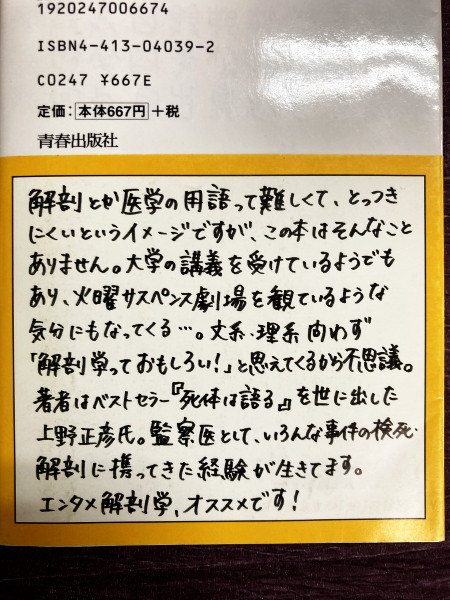 1920247006674
ISBN4-413-04039-2
C0247 ¥667E
定価:本体667円+税
青春出版社
解剖とか医学の用語って難しくて、とっつき
にくいというイメージですが、この本はそんなこと
ありません。大学の講義を受けているようでも
あり、火曜サスペンス劇場を観ているような
気分にもなってくる…。文系・理系問わず
「解剖学っておもしろい!」と思えてくるから不思議。
著者はベストセラー『死体は語る』を世に出した
上野正彦氏。監察医として、いろんな事件の検死・
解剖に携ってきた経験が生きてます。
エンタメ解剖学、オススメです!